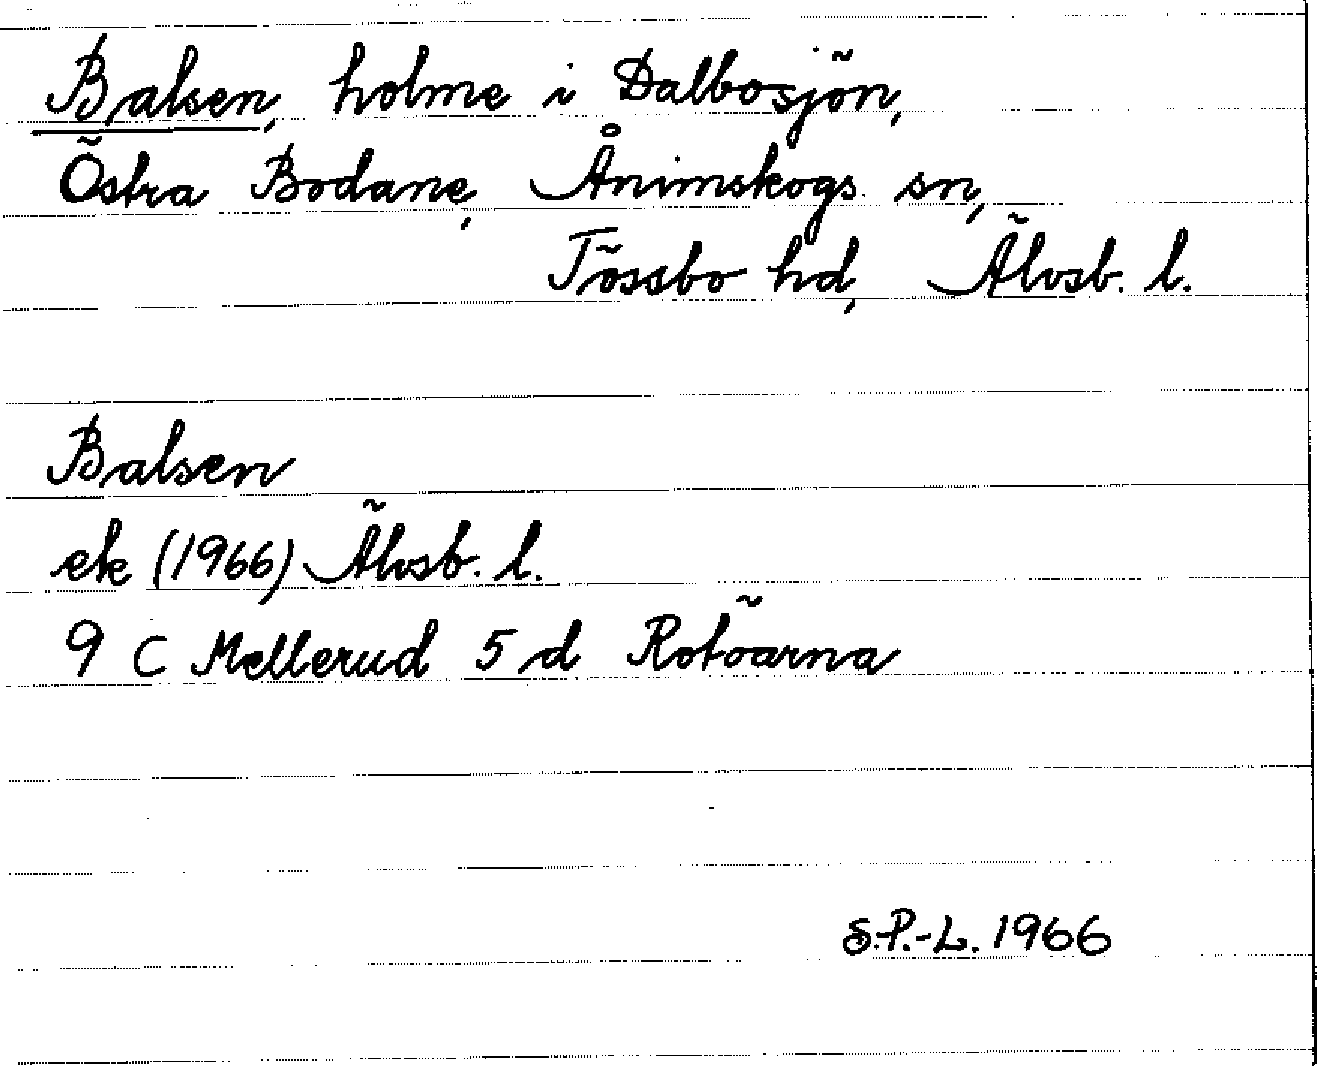 Balsen, holme i Dalbosjön,
Östra Bodane, Ånimskogs sn,
Tössbo hd, Älvsb. l.
Balsen
ek (1966) Älvsb. l.
9 C Mellerud 5 d Rotöarna
S.P.-L. 1966